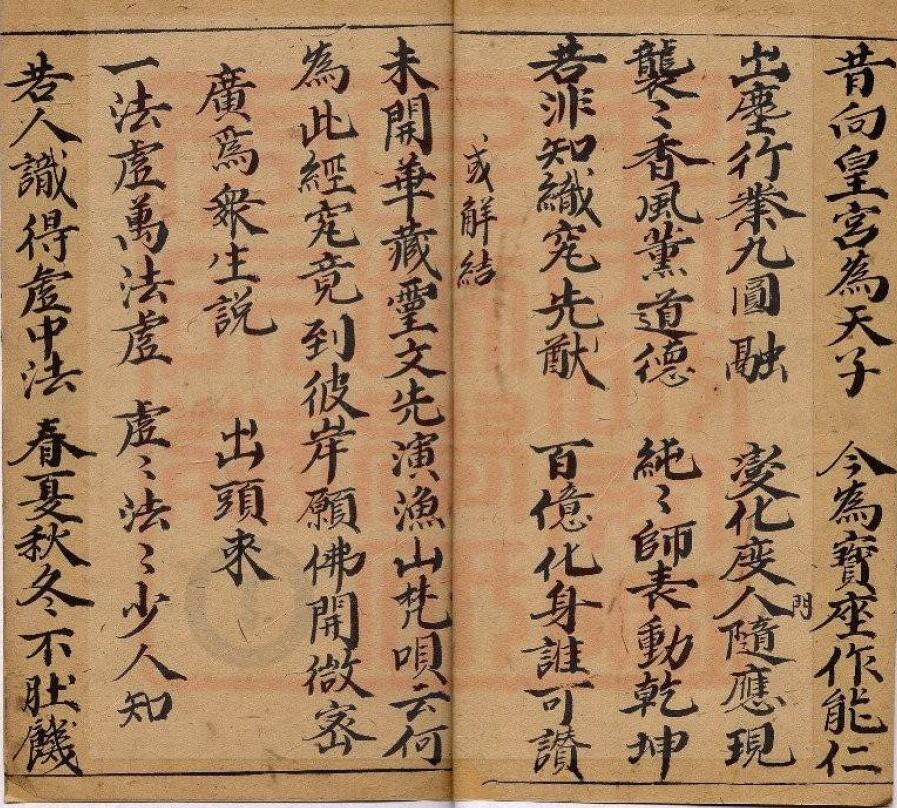 昔向皇宮為天子　今為寶座作能仁
出塵行業九圓融　變化度人隨應現
門
襲〻香風薰道德　純〻師表動乾坤
若非知織究先猷　百億化身誰可讃
或解結
未開華藏靈文先演漁山梵唄云何
為此經究竟到彼岸願佛開微宻
廣爲衆生説　出頭來
一法虛萬法虛　虛〻法〻少人知
若人識得虛中法　春夏秋冬不肚饑